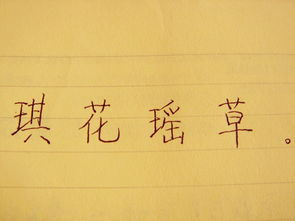 琪花瑶草。